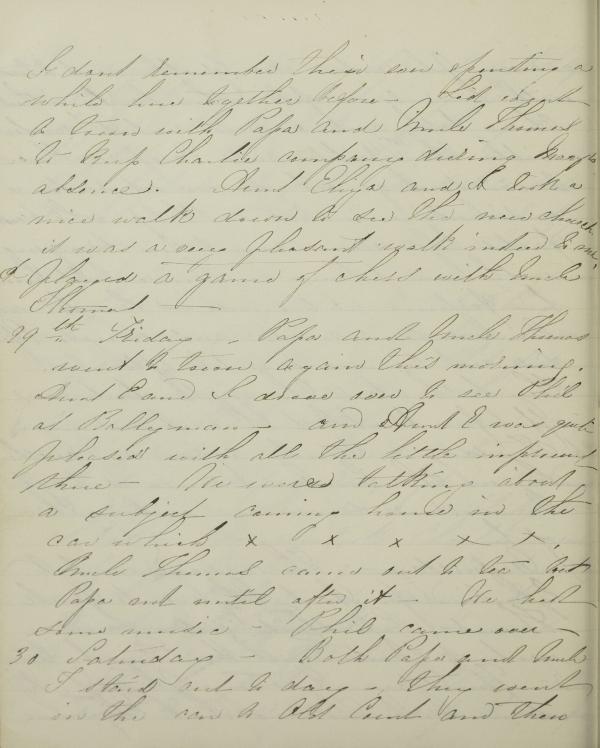 I dont remember their ever spending a
while here together before - Lid went
to town with Papa and Uncle Thomas
to keep Charlie company during
absence. Aunt Eliza and I took a
nice walk down to see the new church
it was a very pleasant walk indeed to me
I played a game of chess with Uncle
Thomas —
29th Friday - Papa and Uncle Thomas
went to town again this morning.
Aunt E and I drove over to see Phil
at Ballyman - and Aunt E was quite
pleased with all the little
there - We were talking about
a subject coming home in the
car which x x x x x.
Uncle Thomas came out to tea but
Papa not until after it - We had
some music - Phil came over -
30 Saturday - Both Papa and Uncle
T staid out to day - They went
in the car to Old Court and then